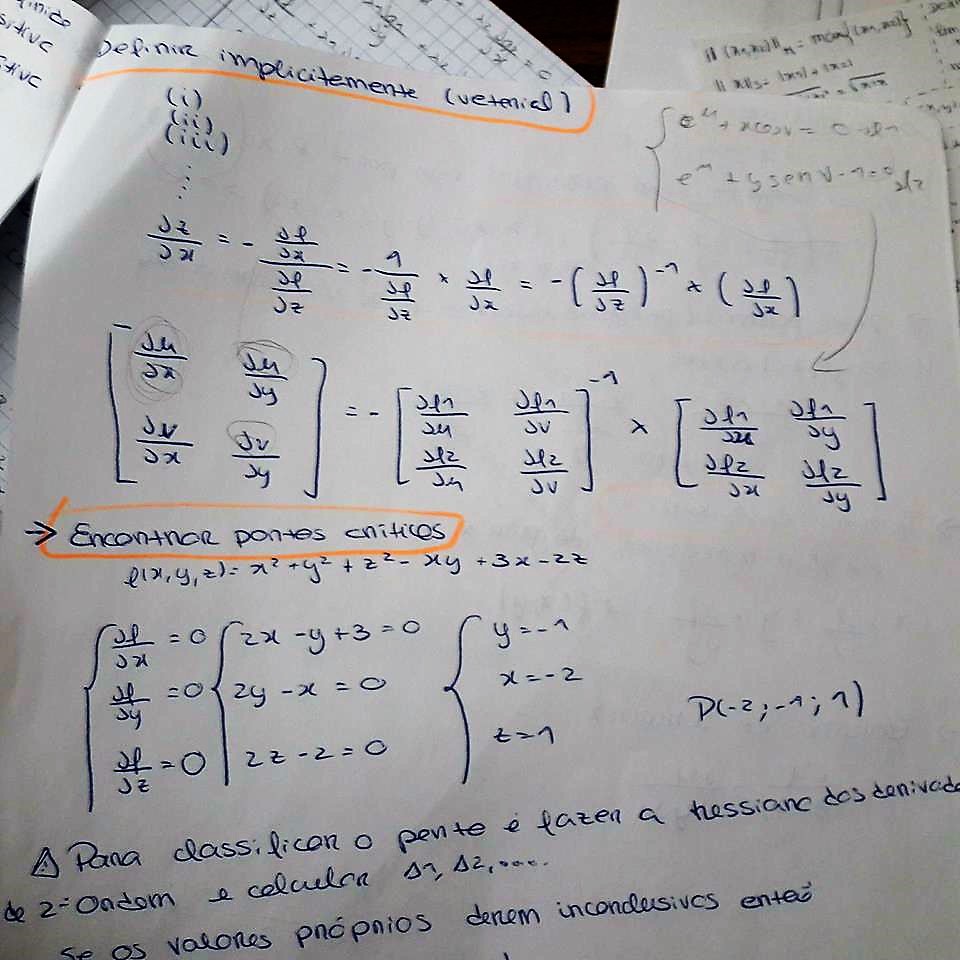 sitive
Definir implicitemente (vetorial)
(i)
(ii)
(iii)
⋮
{ e^u + x cos v = 0 → f1
e^u + y sen v - 1 = 0 → f2
∂z/∂x = - (∂f/∂x)/(∂f/∂z) = - 1/(∂f/∂z) × ∂f/∂x = -(∂f/∂z)^-1 × (∂f/∂x)
[∂u/∂x ∂u/∂y; ∂v/∂x ∂v/∂y] = - [∂f1/∂u ∂f1/∂v; ∂f2/∂u ∂f2/∂v]^-1 × [∂f1/∂x ∂f1/∂y; ∂f2/∂x ∂f2/∂y]
→ Encontrar pontos críticos
f(x,y,z) = x² + y² + z² - xy + 3x - 2z
{ ∂f/∂x = 0 { 2x - y + 3 = 0 { y = -1
∂f/∂y = 0 2y - x = 0 x = -2
P(-2; -1; 1)
∂f/∂z = 0 2z - 2 = 0 z = 1
⚠ Para classificar o ponto é fazer a hessiana das derivada
de 2ª ordem e calcular Δ1, Δ2, ....
se os valores próprios derem inconclusivos então